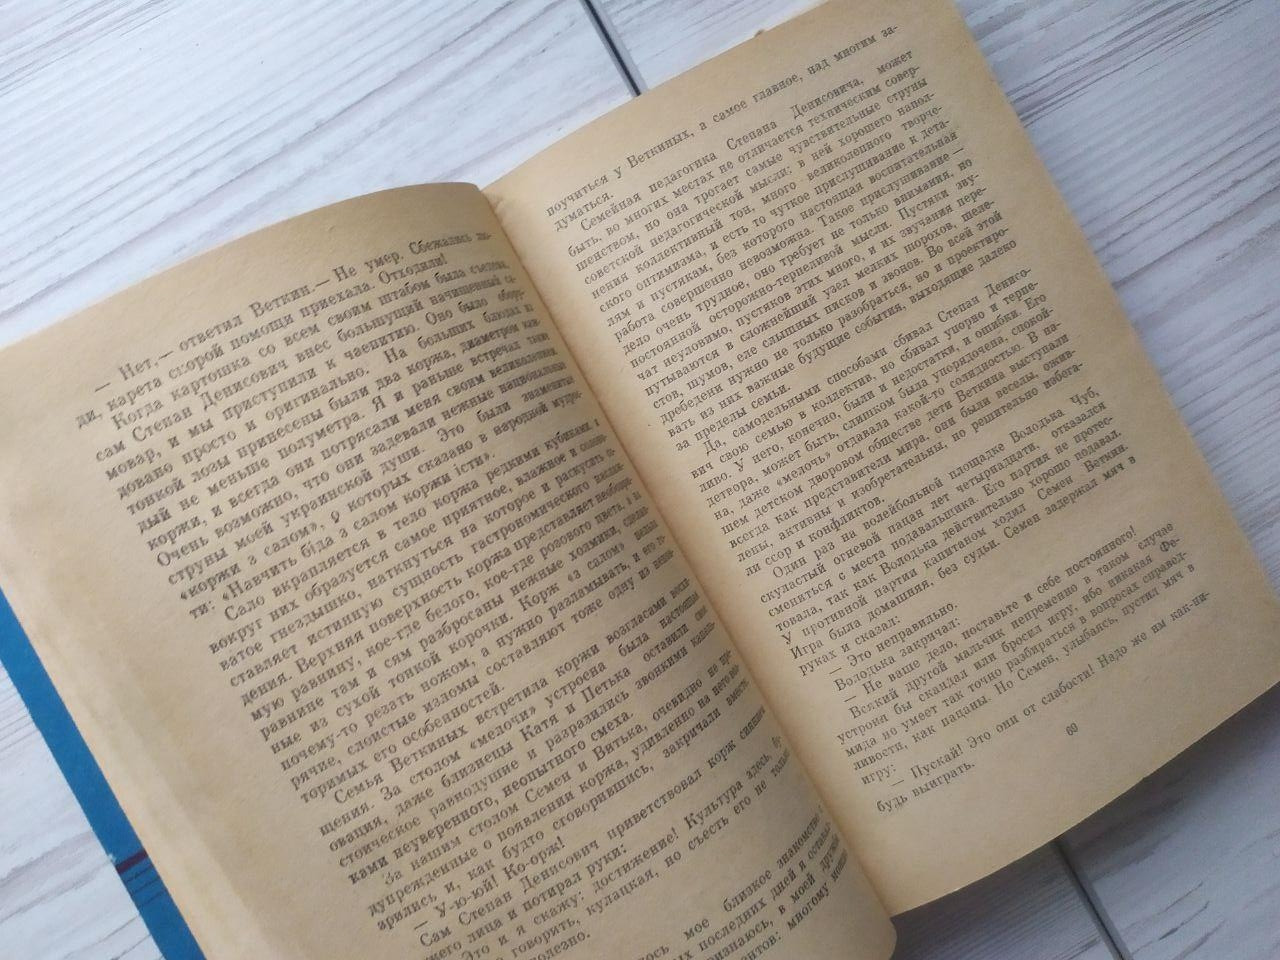 — Нет,— ответил Веткин.— Не умер. Сбежались лю-
ди, карета скорой помощи приехала. Отходили!
Когда картошка со всем своим штабом была съедена,
сам Степан Денисович внес большущий начищенный са-
мовар, и мы приступили к чаепитию. Оно было обору-
довано просто и оригинально. На больших блюдах из
тонкой лозы принесены были два коржа, диаметром каж-
дый не меньше полуметра. Я и раньше встречал такие
коржи, и всегда они потрясали меня своим великолепием.
Очень возможно, что они задевали нежные национальные
струны моей украинской души. Это были знаменитые
«коржи з салом», о которых сказано в народной мудрос-
ти: «Навчить біда з салом коржи їсти».
Сало вкрапляется в тело коржа редкими кубиками, и
вокруг них образуется самое приятное, влажное и солоно-
ватое гнездышко, наткнуться на которое и раскусить со-
ставляет истинную сущность гастрономического наслаж-
дения. Верхняя поверхность коржа представляет необозри-
мую равнину, кое-где белого, кое-где розового цвета, а на
равнине там и сям разбросаны нежные холмики, сделан-
ные из сухой тонкой корочки. Корж «з салом» нельзя
почему-то резать ножом, а нужно разламывать, и его го-
рячие, слоистые изломы составляют тоже одну из непов-
торимых его особенностей.
Семья Веткиных встретила коржи возгласами восхи-
щения. За столом «мелочи» устроена была настоящая
овация, даже близнецы Катя и Петька оставили свое
стоическое равнодушие и разразились звонкими каплями
ками неуверенного, неопытного смеха.
За нашим столом Семен и Витька, очевидно не пре-
дупрежденные о появлении коржа, удивленно на него воз-
зрились и, как будто сговорившись, закричали вместе:
— У-ю-юй! Ко-орж!
Сам Степан Денисович приветствовал корж сиянием
его лица и потирал руки:
Это и я скажу: достижение! Культура здесь,
говорить, кулацкая, но съесть его не только
полезно.
лось мое близкое знакомство
последних дней я
признаюсь, в моей
многому
поучиться у Веткиных, а самое главное, над многим за-
думаться.
Семейная педагогика Степана Денисовича, может
быть, во многих местах не отличается техническим совер-
шенством, но она трогает самые чувствительные струны
советской педагогической мысли: в ней хорошего напол-
нения коллективный тон, много великолепного творче-
ского оптимизма, и есть то чуткое прислушивание к дета-
лям и пустякам, без которого настоящая воспитательная
работа совершенно невозможна. Такое прислушивание —
дело очень трудное, оно требует не только внимания, но
постоянной осторожно-терпеливой мысли. Пустяки зву-
чат неуловимо, пустяков этих много, и их звучания пере-
путываются в сложнейший узел мелких шорохов, шеле-
стов, шумов, еле слышных писков и звонов. Во всей этой
дребедени нужно не только разобраться, но и проектиро-
вать из них важные будущие события, выходящие далеко
за пределы семьи.
Да, самодельными способами сбивал Степан Денисо-
вич свою семью в коллектив, но сбивал упорно и терпе-
ливо. У него, конечно, были и недостатки, и ошибки. Его
детвора, может быть, слишком была упорядочена, спокой-
на, даже «мелочь» отдавала какой-то солидностью. В на-
шем детском дворовом обществе дети Веткина выступали
всегда как представители мира, они были веселы, ожив-
лены, активны и изобретательны, но решительно избега-
ли ссор и конфликтов.
Один раз на волейбольной площадке Володька Чуб,
скуластый огневой пацан лет четырнадцати, отказался
смениться с места подавальщика. Его партия не протес-
товала, так как Володька действительно хорошо подавал.
У противной партии капитаном ходил Семен Веткин.
Игра была домашняя, без судьи. Семен задержал мяч в
руках и сказал:
— Это неправильно.
Володька закричал:
— Не ваше дело, поставьте и себе постоянного!
Всякий другой мальчик непременно в таком случае
устроил бы скандал или бросил игру, ибо никакая Фе-
мида но умеет так точно разбираться в вопросах справед-
ливости, как пацаны. Но Семен, улыбаясь, пустил мяч в
игру:
— Пускай! Это они от слабости! Надо же им как-ни-
будь выиграть.
69